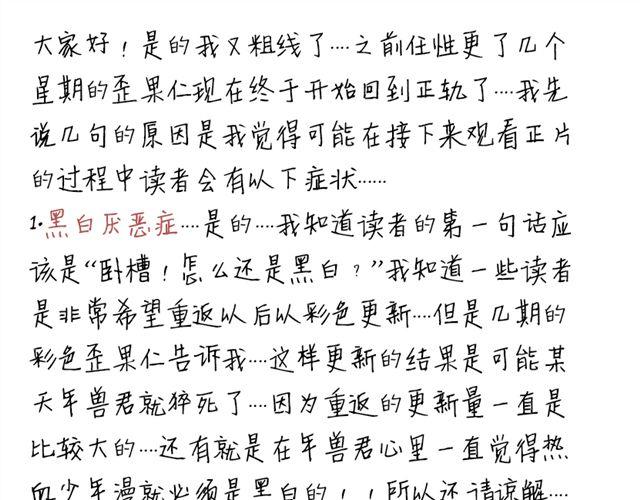 大家好！是的我又粗线了····之前任性更了几个
星期的歪果仁现在终于开始回到正轨了····我先
说几句的原因是我觉得可能在接下来观看正片
的过程中读者会有以下症状······
1.黑白厌恶症····是的····我知道读者的第一句话应
该是“卧槽！怎么还是黑白？”我知道一些读者
是非常希望重返以后以彩色更新····但是几期的
彩色歪果仁告诉我····这样更新的结果是可能某
天年兽君就猝死了····因为重返的更新量一直是
比较大的····还有就是在年兽君心里一直觉得热
血少年漫就必须是黑白的！！所以还请谅解····